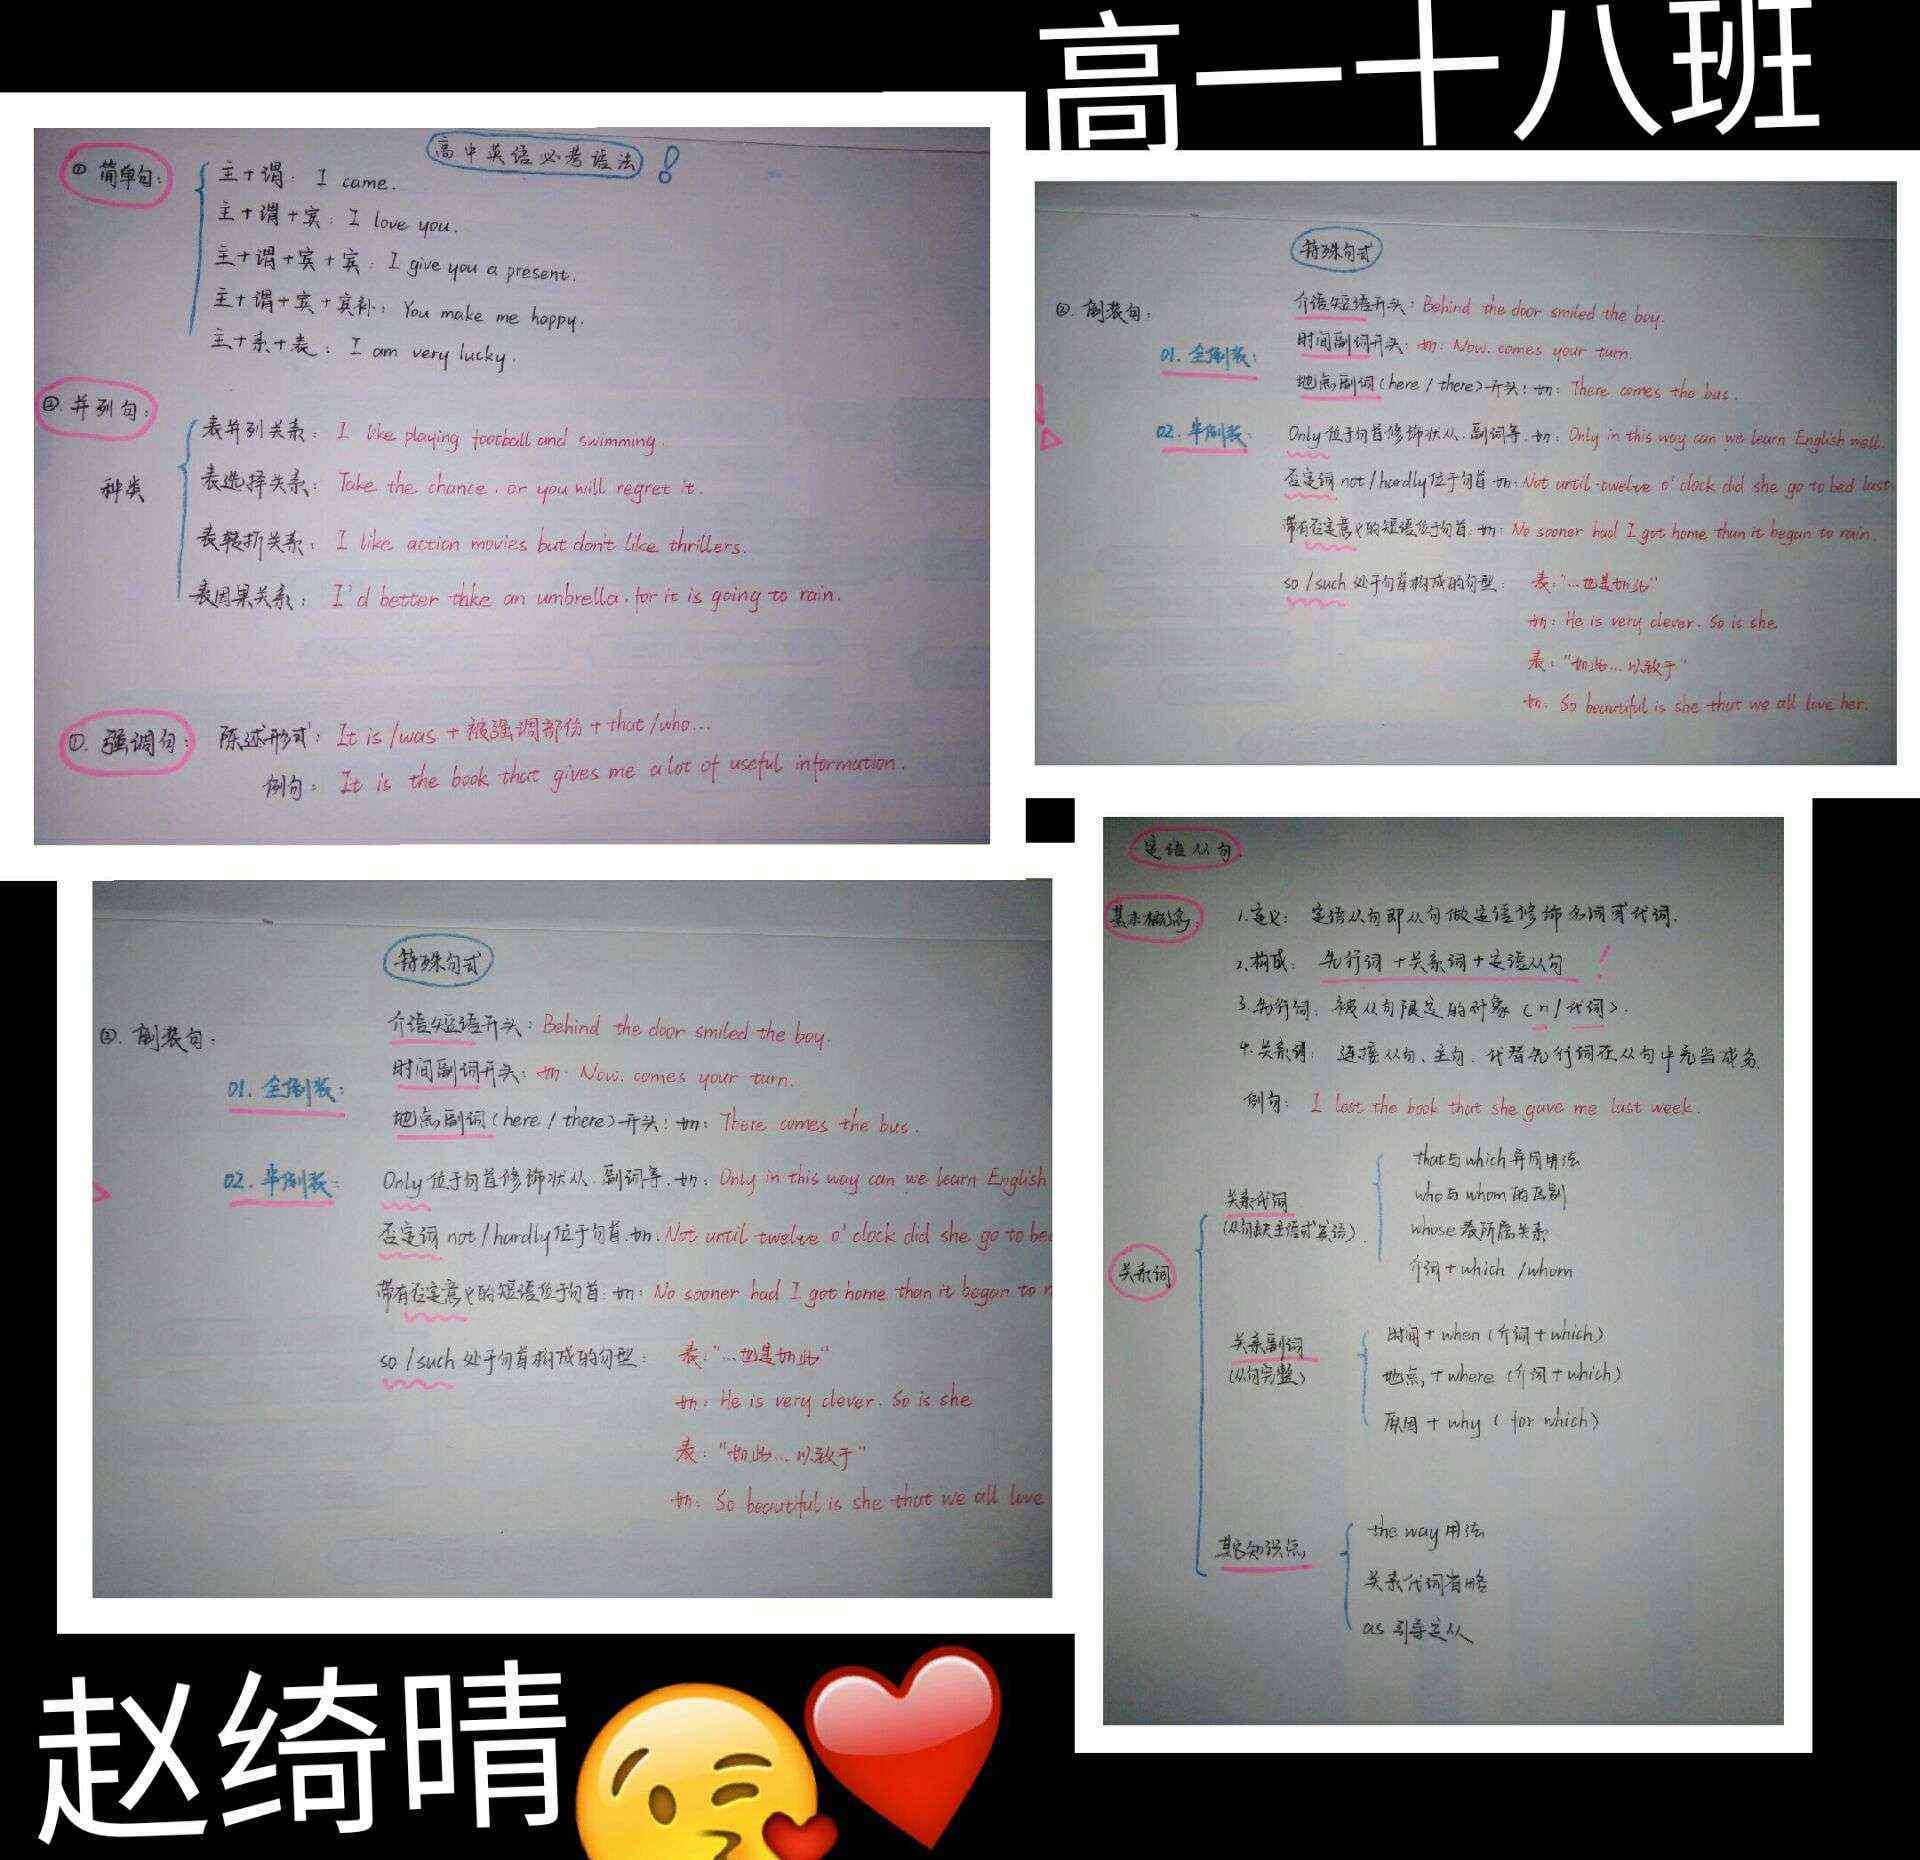 高一十八班
高中英语必考语法!
① 简单句:
主+谓: I came.
主+谓+宾: I love you.
主+谓+宾+宾: I give you a present.
主+谓+宾+宾补: You make me happy.
主+系+表: I am very lucky.
②. 并列句:
种类
表并列关系: I like playing football and swimming.
表选择关系: Take the chance, or you will regret it.
表转折关系: I like action movies but don't like thrillers.
表因果关系: I'd better take an umbrella, for it is going to rain.
①. 强调句:
陈述形式: It is /was + 被强调部份 + that /who...
例句: It is the book that gives me a lot of useful information.
特殊句式
②. 倒装句:
01. 全倒装:
介语短语开头: Behind the door smiled the boy.
时间副词开头: 如: Now. comes your turn.
地点副词(here / there)开头: 如: There comes the bus.
02. 半倒装:
Only 位于句首修饰状从. 副词等. 如: Only in this way can we learn English well.
否定词 not / hardly 位于句首 如: Not until twelve o'clock did she go to bed last
带有否定意义的短语位于句首: 如: No sooner had I got home than it began to rain.
so / such 处于句首构成的句型:
表: "...也是如此"
如: He is very clever. So is she
表: "如此...以致于"
如: So beautiful is she that we all love her.
特殊句式
②. 倒装句:
01. 全倒装:
介语短语开头: Behind the door smiled the boy.
时间副词开头: 如: Now. comes your turn.
地点副词(here / there)开头: 如: There comes the bus.
02. 半倒装:
Only 位于句首修饰状从. 副词等. 如: Only in this way can we learn English
否定词 not / hardly 位于句首. 如. Not until twelve o'clock did she go to be
带有否定意义的短语位于句首: 如: No sooner had I got home than it began to
so / such 处于句首构成的句型:
表: "...也是如此"
如: He is very clever. So is she
表: "如此...以致于"
如: So beautiful is she that we all love
定语从句.
基本概念:
1. 定义: 定语从句即从句做定语修饰名词或代词.
2. 构成: 先行词 + 关系词 + 定语从句 !
3. 先行词: 被从句限定的对象 (n / 代词).
4. 关系词: 连接从句、主句. 代替先行词在从句中充当成务.
例句: I lost the book that she gave me last week.
关系词
关系代词
(从句缺主语或宾语).
that与which异同用法
who与whom的区别
whose表所属关系
介词 + which / whom
关系副词
(从句完整)
时间 + when (介词 + which)
地点, + where (介词 + which)
原因 + why ( for which)
其它知识点
the way 用法
关系代词省略
as 引导定从
赵绮晴